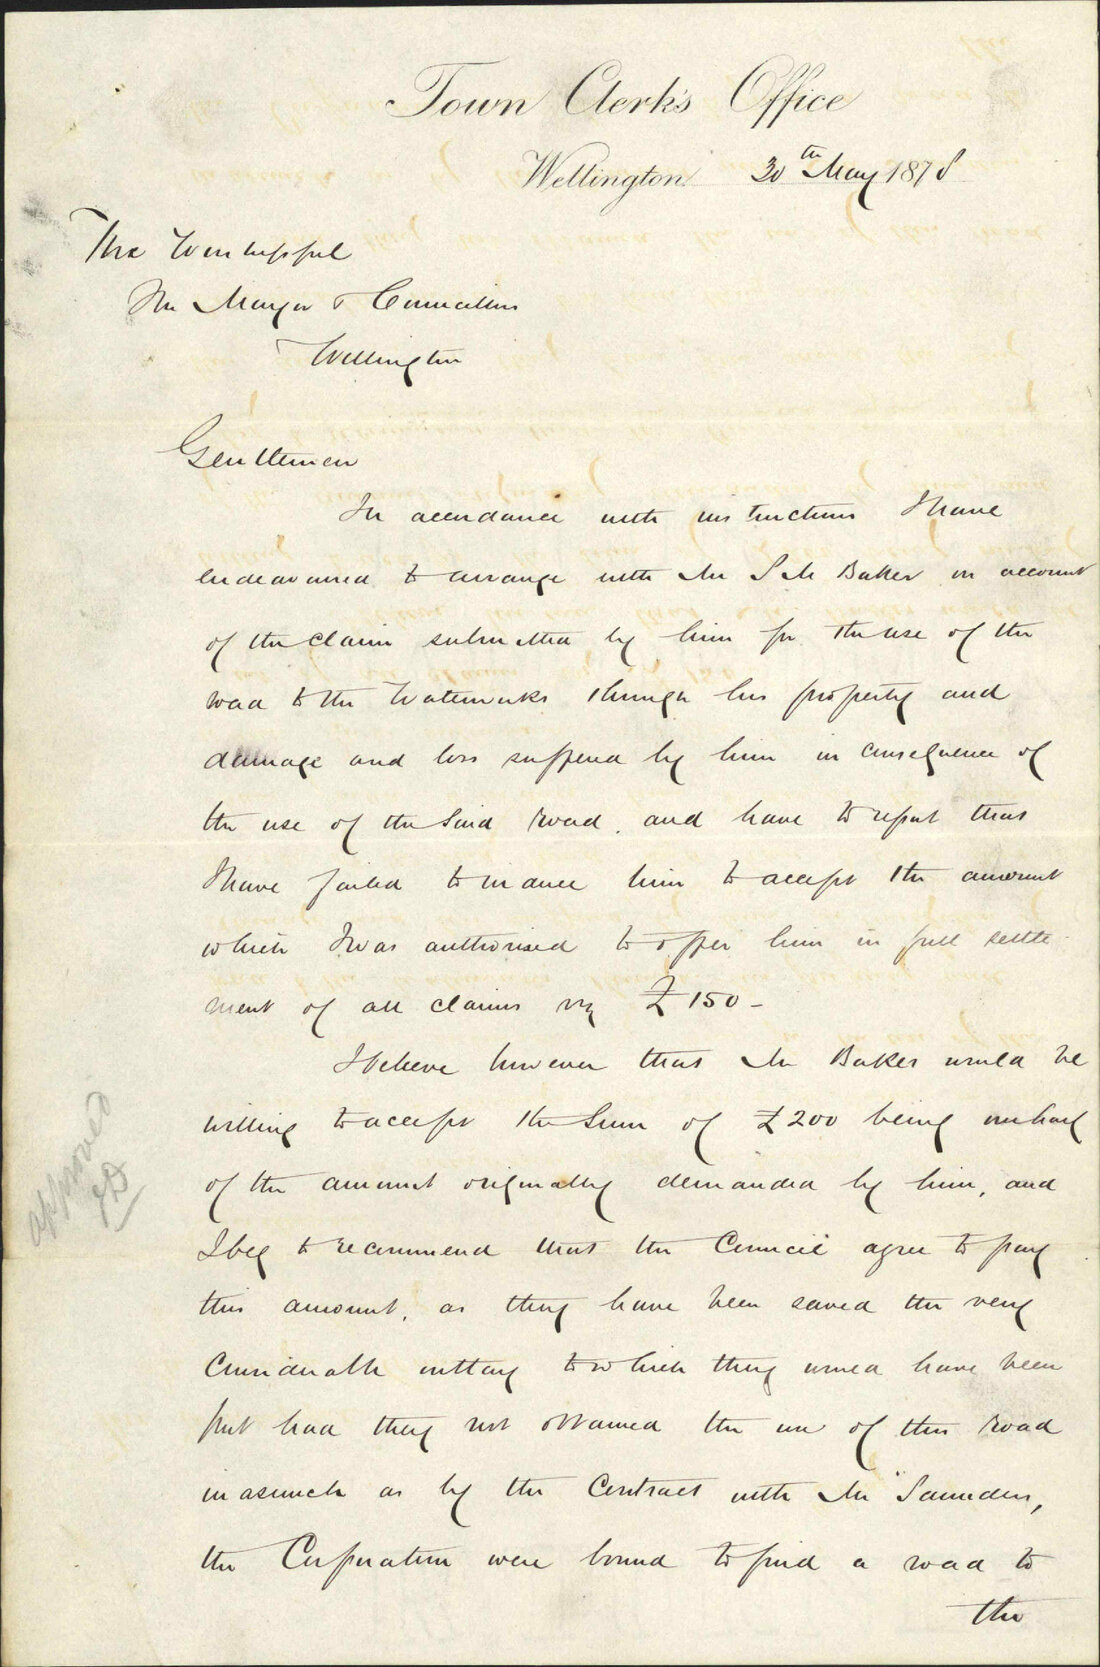 Town Clerk's Office
Wellington 30th May 1878
The Worshipful
The Mayor & Councillors
Wellington
Gentlemen
In accordance with instructions I have
endeavoured to arrange with Mr Baker on account
of the claim submitted by him for the use of the
road to the Waterworks through his property and
damage and loss suffered by him in consequence of
the use of the said road, and have to report that
I have failed to induce him to accept the amount
which I was authorised to offer him in full settle
ment of all claims viz £150 –
I believe however that Mr Baker would be
willing to accept the sum of £200 being one half
of the amount originally demanded by him, and
I beg to recommend that the Council agree to pay
this amount, as they have been saved the very
considerable outlay to which they would have been
put had they not obtained the use of this road
inasmuch as by the Contract with Mr Saunders,
the Corporation were bound to find a road to
the
approved